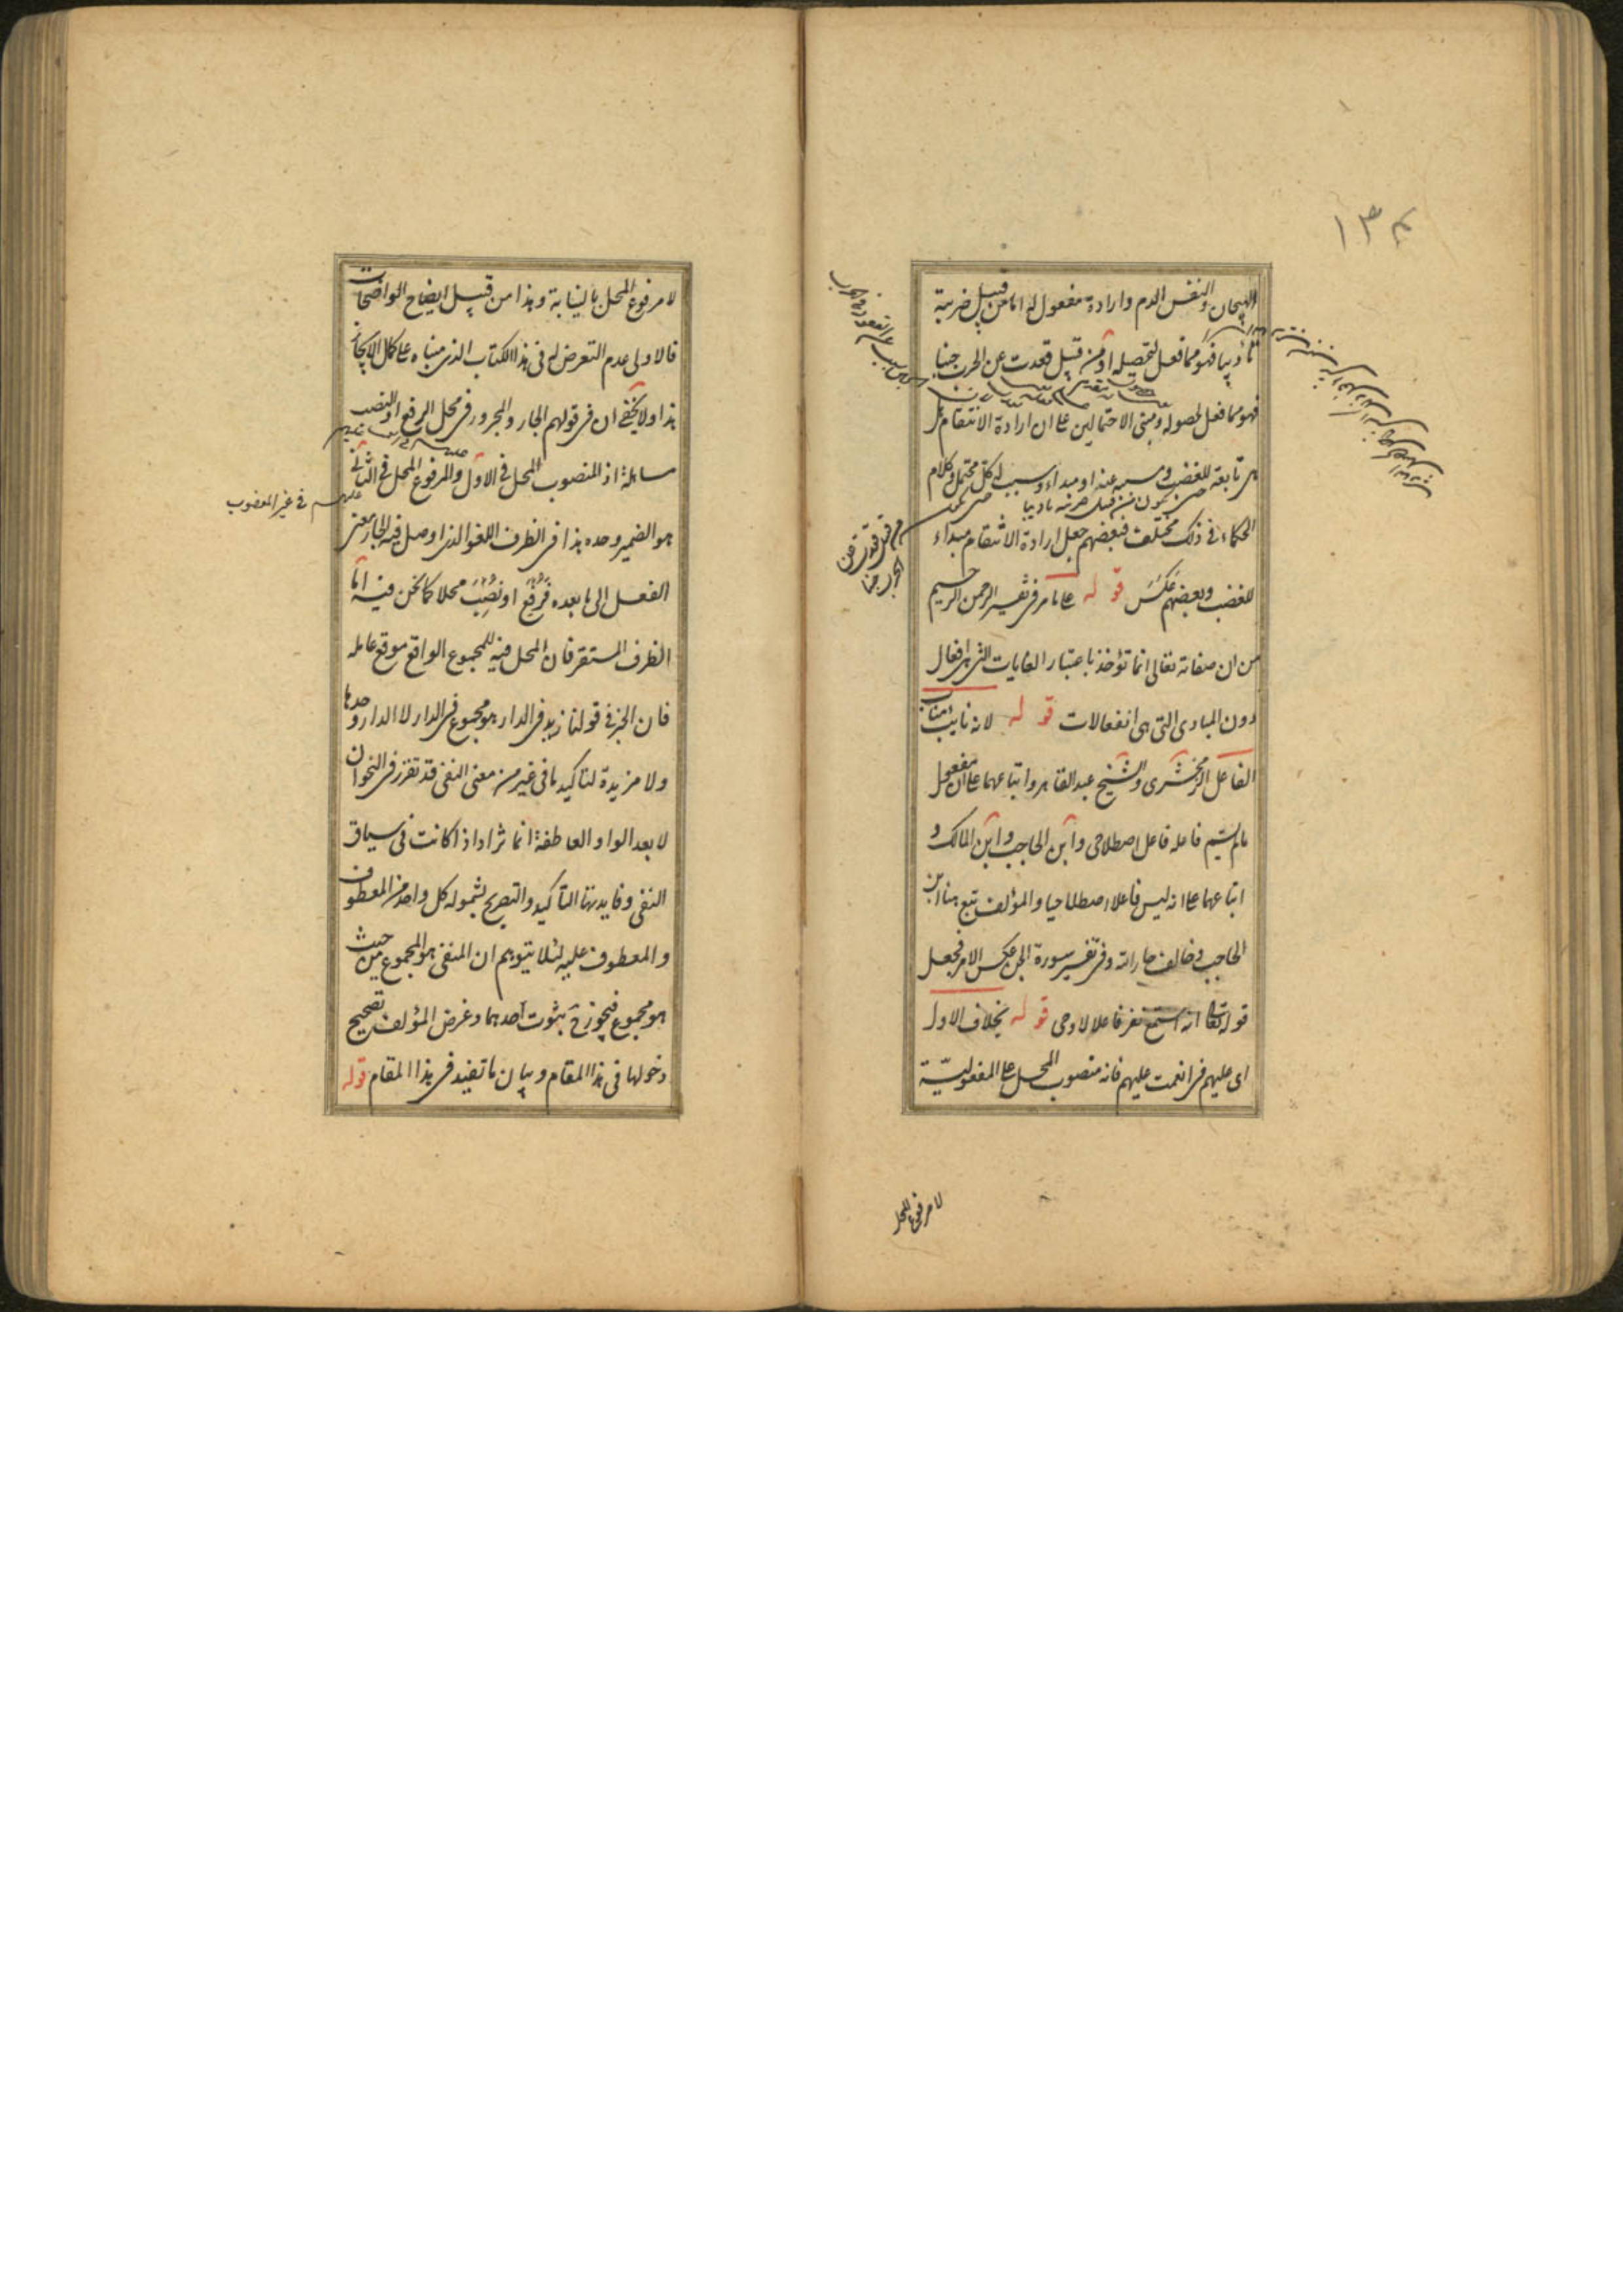 ١٣٤
الهيجان والنفس الدم وارادة مفعول له اما من قبيل ضربته
تأديبا فهو مما فعل لتحصيله او من قبيل قعدت عن الحرب جبنا
فهو مما فعل لحصوله ومبنى الاحتمالين على ان ارادة الانتقام هل
هي تابعة للغضب ومسببة عنه او مبداء وسبب له كل محتمل وكلام
حتى يكون من قبيل ضربته تاديبا
الحكماء في ذلك مختلف فبعضهم جعل ارادة الانتقام مبداء
من قبيل قعدت عن
الحرب جبنا
للغضب وبعضهم عكس قوله على ما مر في تفسير الرحمن الرحيم
من ان صفاته تعالى انما تؤخذ باعتبار الغايات التي هي افعال
دون المبادى التي هي انفعالات قوله لانه نايب مناب
الفاعل الزمخشرى والشيخ عبد القاهر واتباعهما على ان مفعول
مالم يسم فاعله فاعل اصطلاحى وابن الحاجب وابن المالك و
اتباعهما على انه ليس فاعلا اصطلاحيا والمؤلف تبع هنا ابن
الحاجب وخالف جار الله وفى تفسير سورة الجن عكس الامر فجعل
قوله تعالى انه استمع نفر فاعلا لاوحى قوله بخلاف الاول
اى عليهم في انعمت عليهم فانه منصوب المحل على المفعولية
لا مرفوع المحل
لا مرفوع المحل بالنيابة وهذا من قبيل ايضاح الواضحات
فالاولى عدم التعرض له في هذا الكتاب الذى مبناه على كمال الايجاز
هذا ولا يخفى ان في قولهم الجار والمجرور في محل الرفع او النصب
مساهلة اذ المنصوب المحل في الاول والمرفوع المحل في الثانى
عليهم في غير المغضوب
هو الضمير وحده هذا في الظرف اللغو الذى اوصل فيه الجار معنى
الفعل الى ما بعده فرُفع او نُصب محلا كما نحن فيه اما
الظرف المستقر فان المحل فيه للمجموع الواقع موقع عامله
فان الخبر في قولنا زيد في الدار هو مجموع في الدار لا الدار وحدها
ولا مزيدة لتاكيد ما في غير من معنى النفى قد تقرر في النحو ان
لا بعد الواو العاطفة انما تزاد اذا كانت في سياق
النفى وفايدتها التاكيد والتصريح بشموله كل واحد من المعطوف
والمعطوف عليه لئلا يتوهم ان المنفى هو المجموع من حيث
هو مجموع فيجوز ح ثبوت احدهما وغرض المؤلف تصحيح
دخولها في هذا المقام وبيان ما تفيد في هذا المقام قوله